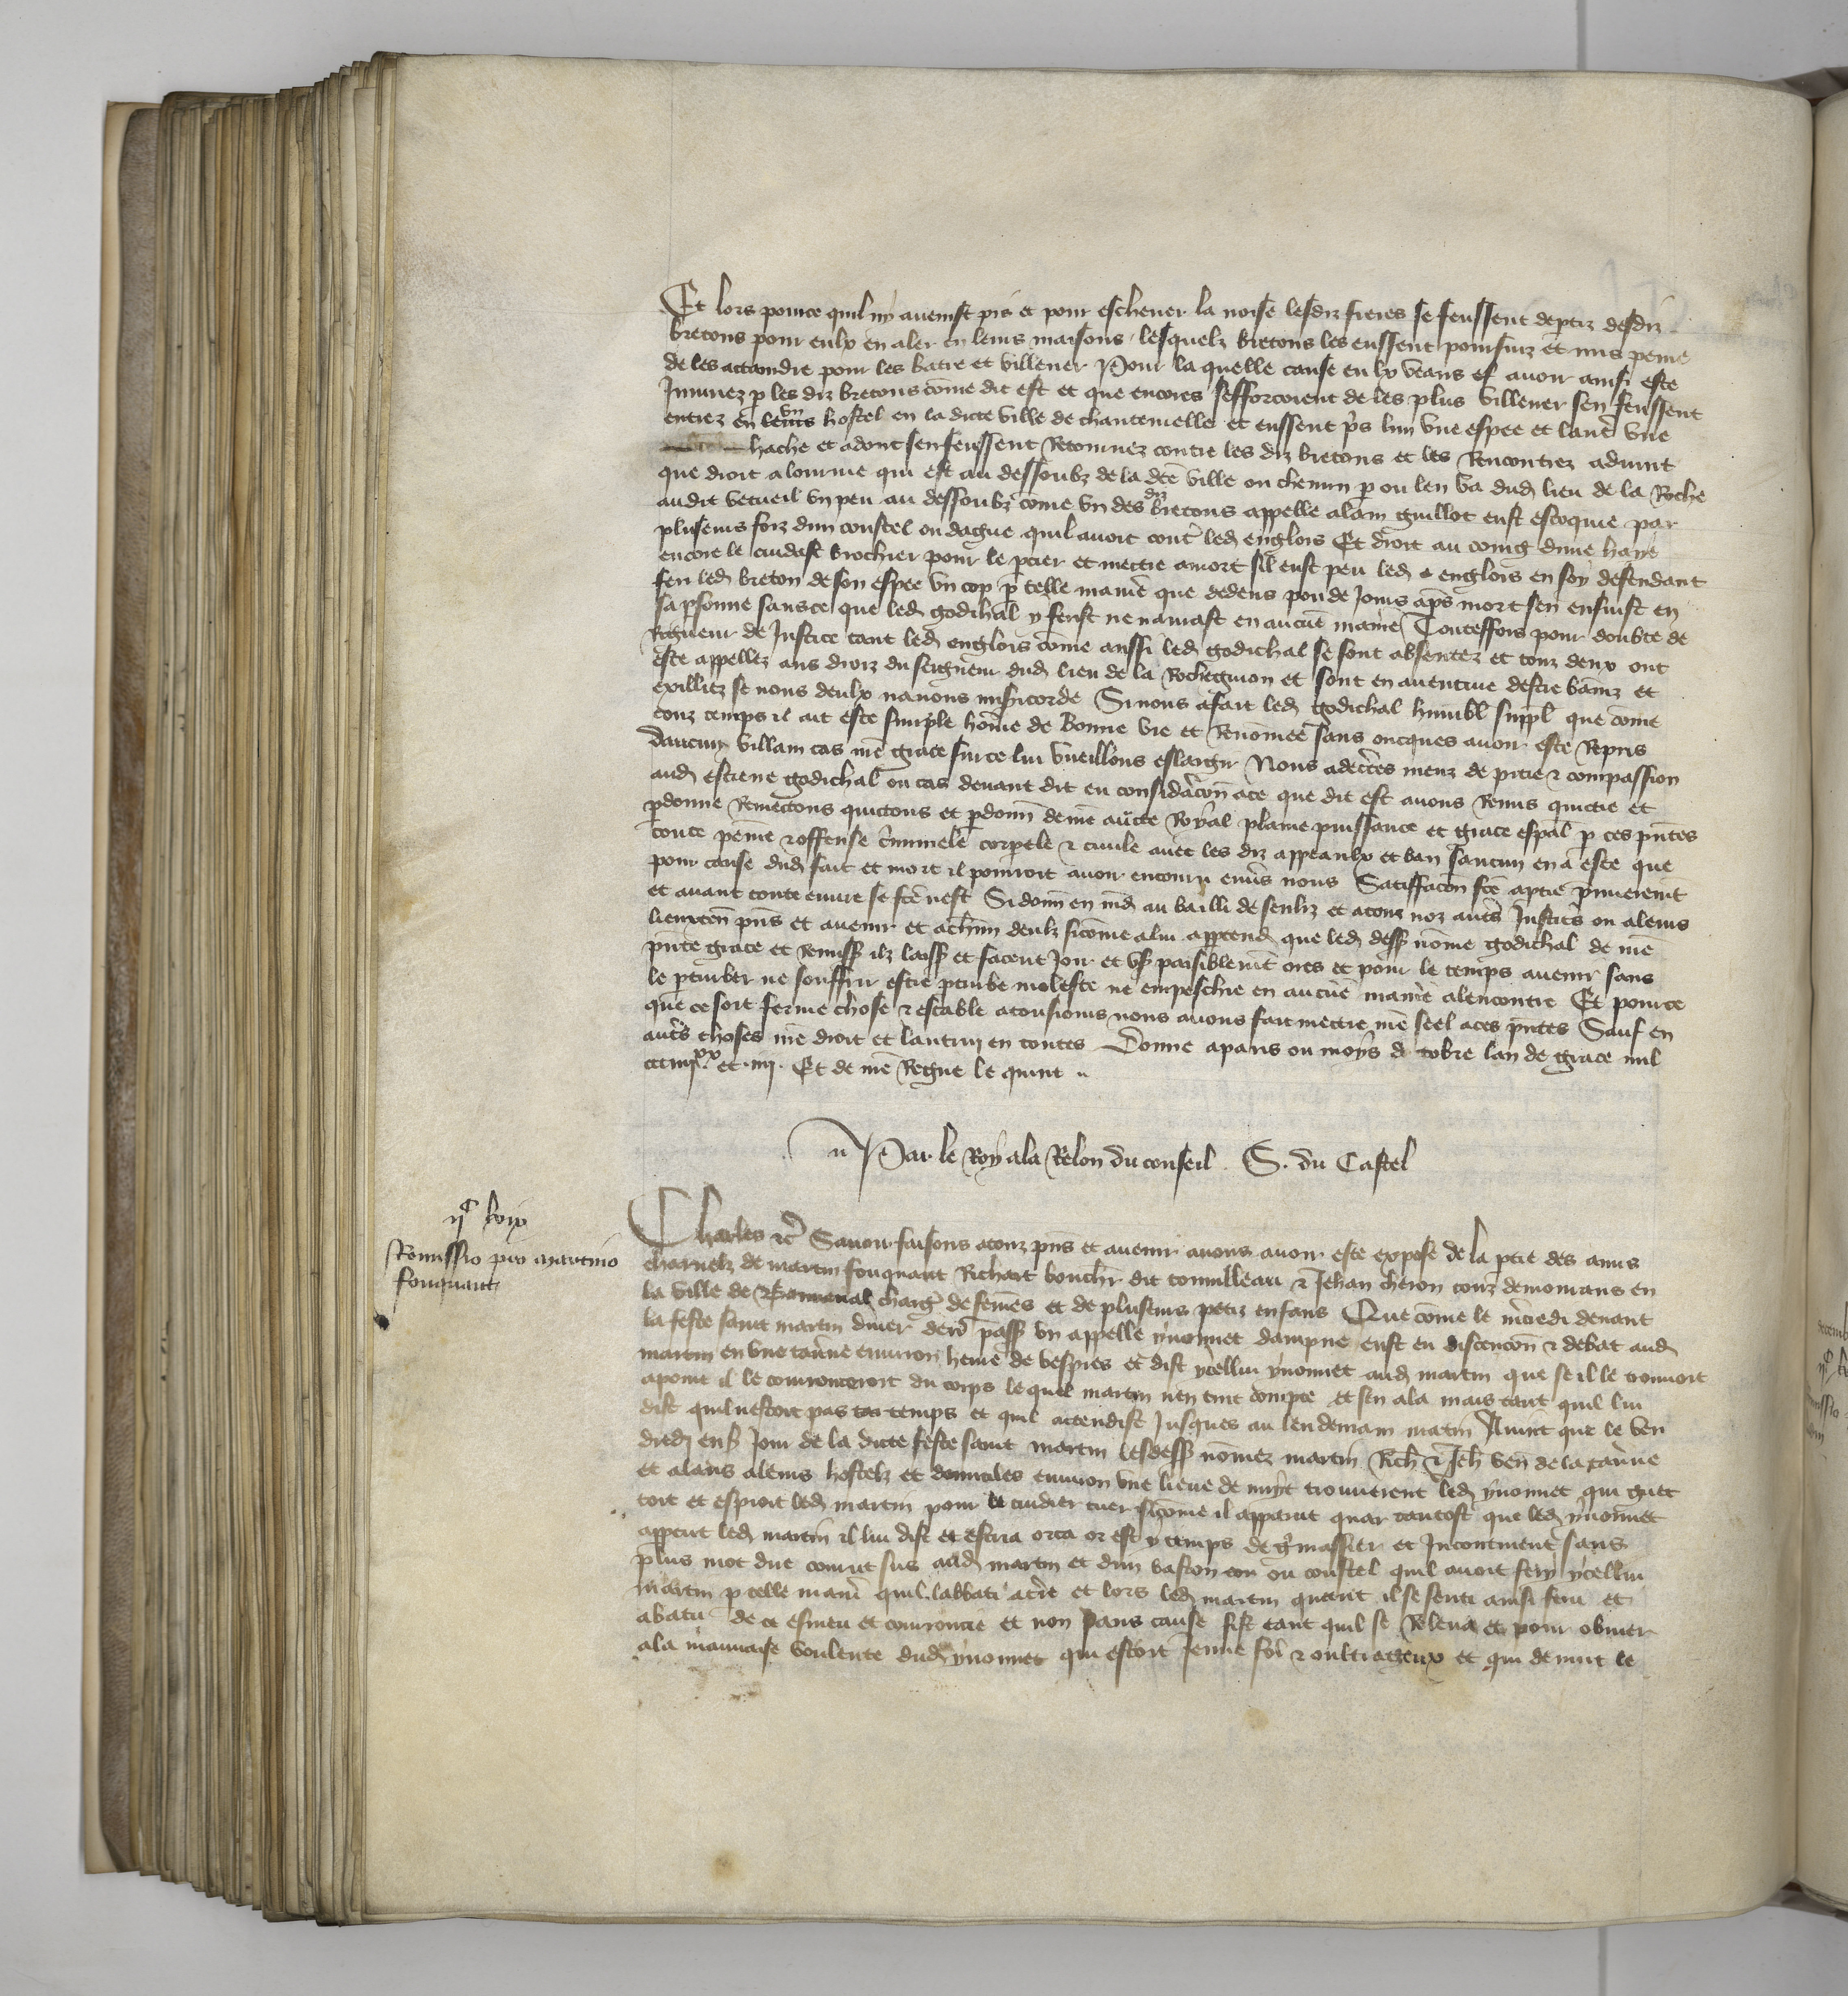 Et lors pource quil ny avenist pis et pour eschever la noise lesdiz freres se feussent deptiz desdiz
bretons pour eulx en aler en leurs maisons lesquelz bretons les eussent poursuiz et mis peine
de les actaindre pour les batre et villener Pour la quelle cause eulx veans et avoir ainsi este
Iniuriez p les diz bretons come dit est et que encores sefforcoient de les plus villener sen feussent
entrez en leurs un hostel en la dicte ville de chantemelle et eussent pris lun une espee et lautre une
hache et adont sen feussent Retournez contre les diz bretons et les Rencontrez advint
que droit a lourme qui est au dessoubz de la dce ville ou chemin p ou len va dud lieu de la Roche
audit vetueil un peu au dessoubz come un des diz bretons appelle alain guillot eust estoquie par
pluseurs foiz dun coustel ou dague quil avoit contre led englois Et droit au coing dune haye
encore le cuidast brochier pour le percier et mectre a mort sil eust peu led englois en soy defendant
feri led breton de son espee un cop p telle manie que dedens pou de Jours aps mort sen ensuist en
sa psonne sans ce que led godichal y ferist ne navrast en aucune maniere Touteffois pour doubte de
Rigueur de Justice tant led englois come aussi led godichal se sont absentez et touz deux ont
este appellez aus droiz du seigneur dud lieu de la Rocheguion et sont en aventure destre baniz et
exilliez se nous deulx navons misicorde Si nous a fait led godichal humbl suppl que come
touz temps il ait este simple home de bonne vie et Renomee sans oncques avoir este Repris
daucun villain cas nre grace sur ce lui vueillons eslargir Nous adecertes meuz de pitie et compassion
aud estiene godichal ou cas devant dit en consideracon a ce que dit est avons Remis quictie et
pdonne Remectons quictons et pdonn de nre aucte Royal plaine puissance et grace espal p ces pntes
toute peine et offense criminele corpele et civile avec les diz appeaulx et ban saucun en a este que
pour cause dud fait et mort il pourroit avoir encouru envers nous Satisfacon fce a ptie p mierement
et avant toute euvre se fce nest Si donn en md au bailli de senliz et a touz noz autres Justic ou a leurs
lieuxten pns et avenir et a chun deulx sicome a lui appertend que led dess nome godichal de nre
pnte grace et Remiss ilz laiss et facent Joir et us paisiblement ores et pour le temps avenir sans
le pturber ne souffrir estre pturbe moleste ne empeschie en aucune maniere alencontre Et pource
que ce soit ferme chose et estable a tousiours nous avons fait mectre nre seel a ces pntes Sauf en
autres choses nre droit et lautruy en toutes Donne a paris ou moys de tobre lan de grace mil
ccc iiijxx et iiij. Et de nre Regne le quint
Par le Roy a la Relon du conseil. S. du Castel
ijc lxix
Remissio pro martino
fouquaut
Charles etc Savoir faisons a touz pns et avenir avons avoir este expose de la ptie des amis
charnelz de martin fouquaut Richart bouchr dit tomilleau et Jehan cheron touz demourans en
la ville de charg de femes et de pluseurs petiz enfans Que come le mcredi devant
la feste saint martin diver derr pass un appelle yvonnet dampne eust eu discencon et debat aud
martin en une taverne environ heure de vespres et dist ycellui yvonnet aud martin que se il le trouvoit
a point il le courrouceroit du corps le quel martin nen tint compte et sen ala mais tant quil lui
dist quil nestoit pas temps et quil actendist Jusques au lendemain matin Avint que le ven
dredi ens Jour de la dicte feste saint martin lesdess nomez martin Rich et Jeh ven de la taverne
et alans a leurs hostelz et domiciles environ une lieue de nuyt trouverent led yvonnet qui guec
toit et espioit led martin pour le cuidier tuer sicome il apparut quar tantost que led yvonnet
appcut led martin il lui dist et escria orca or est y temps de gmassier et Incontinent sans
plus mot dire courut sus aud martin et dun baston ou coustel quil avoit fery ycellui
martin p telle mani quil labbati a tre et lors led martin quant il se senti ainsi feru et
abatu de ce esmeu et courroucie et non sans cause fist tant quil se Releva et pour obvier
a la mauvaise voulente dud yvonnet qui estoit Jeune fort et oultrageux et qui de nuit le